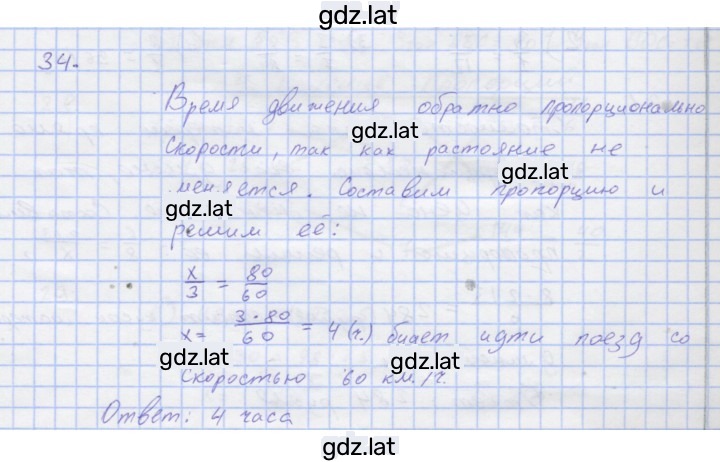 gdz.lat
34.
Время движения обратно пропорционально
gdz.lat
скорости, так как растояние не
gdz.lat
меняется. Составим пропорцию и
gdz.lat
решим её:
x/3 = 80/60
gdz.lat
x= 3·80/60 = 4 (ч.) идти поезд со
gdz.lat
gdz.lat
скоростью 60 км./ч.
Ответ: 4 часа
gdz.lat